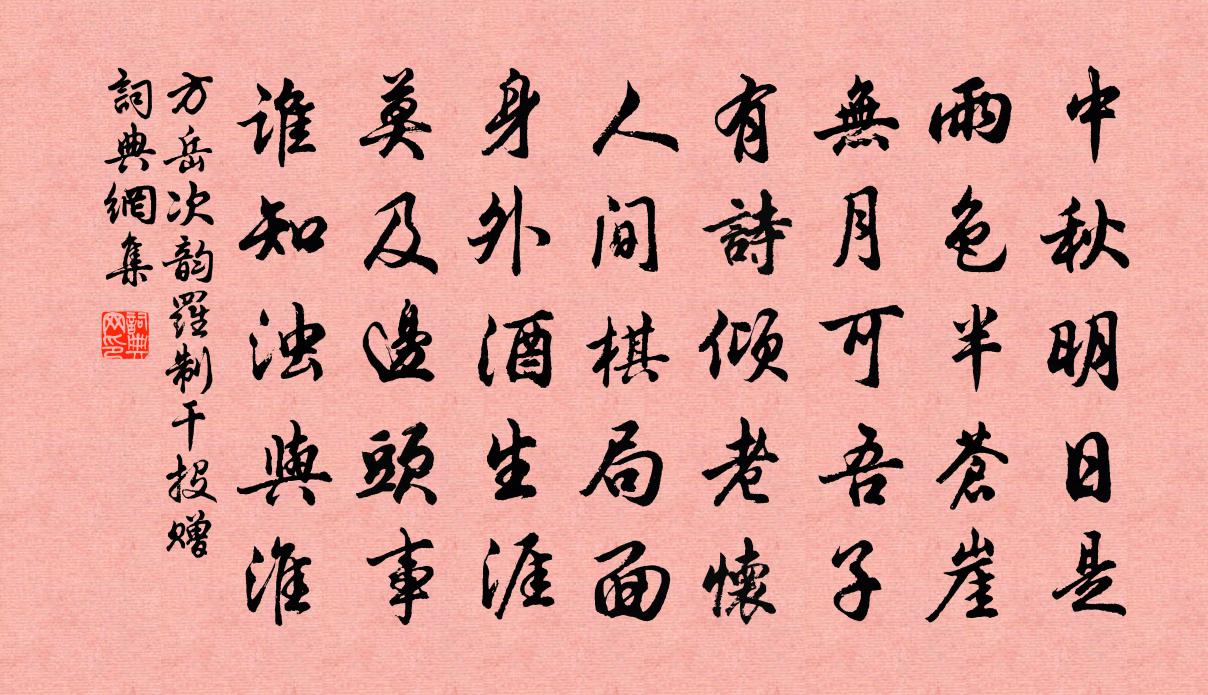 中秋明日是
雨色半蒼崖
無月可吾子
有詩傾老懷
人間棋局面
身外酒生涯
莫及邊頭事
誰知浊與淮
方岳次韵羅制干投赠
詞典網集
詞典網印